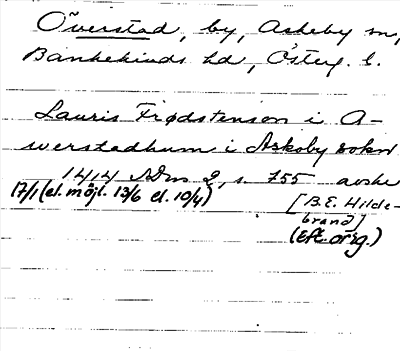 Överstad, by, Askeby sn,
Bankekinds hd, Österg. l.
Lauris Frødstenson i A-
werstadhum i Askoby sokn
1414 ADns 2, s. 755 avskr
17/1 (el. möjl. 13/6 el. 10/4) [B.E. Hilde-
brand]
(Eft. orig.)